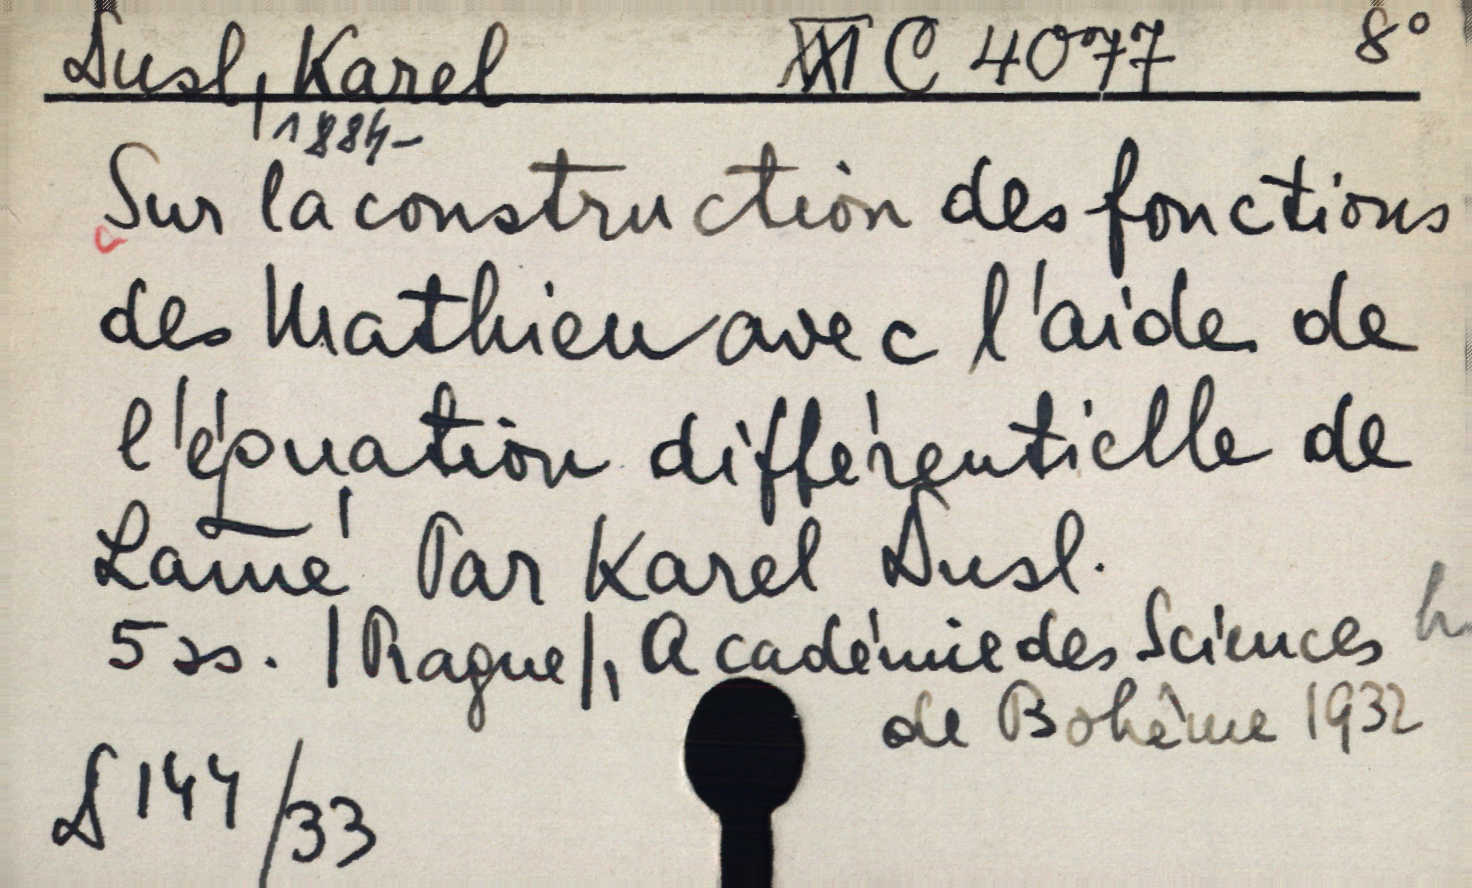 Dusl, Karel XXI C 4077 8°
1884-
Sur la construction des fonctions
des Mathieu avec l'aide de
l'équation différentielle de
Lamé Par Karel Dusl.
5 ss. |Prague|, Académie des Sciences
de Bohême 1932
D 144/33